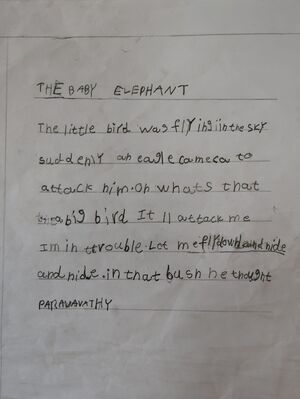 THE BABY ELEPHANT
The little bird was flying in the sky
suddenly an eagle came to
attack him. Oh whats that
a big bird It ll attack me
Im in ttrouble. Let me fly down and hide
and hide. in that bush he thought
PARAWAVATHY